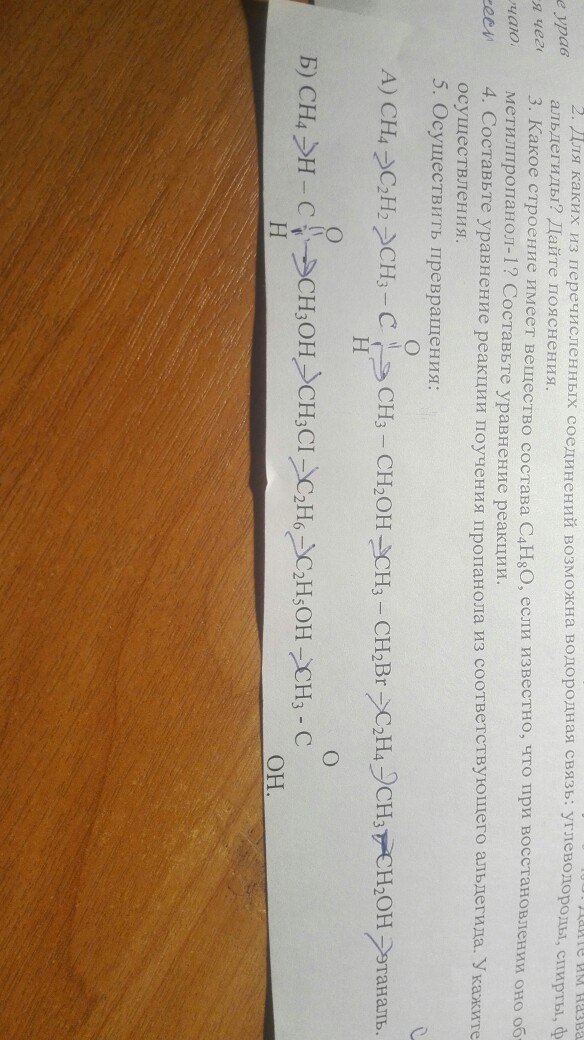 е урав
я чег
учаю.
2. Для каких из перечисленных соединений возможна водородная связь: углеводороды, спирты, ф
альдегиды? Дайте пояснения.
3. Какое строение имеет вещество состава C₄H₈O, если известно, что при восстановлении оно об
метилпропанол-1? Составьте уравнение реакции.
4. Составьте уравнение реакции поучения пропанола из соответствующего альдегида. Укажите
осуществления.
5. Осуществить превращения:
O
А) CH₄ → C₂H₂ → CH₃ – C → CH₃ – CH₂OH → CH₃ – CH₂Br → C₂H₄ → CH₃ – CH₂OH → этаналь.
H
O O
Б) CH₄ → H – C → CH₃OH → CH₃Cl → C₂H₆ → C₂H₅OH → CH₃ - C
H OH.